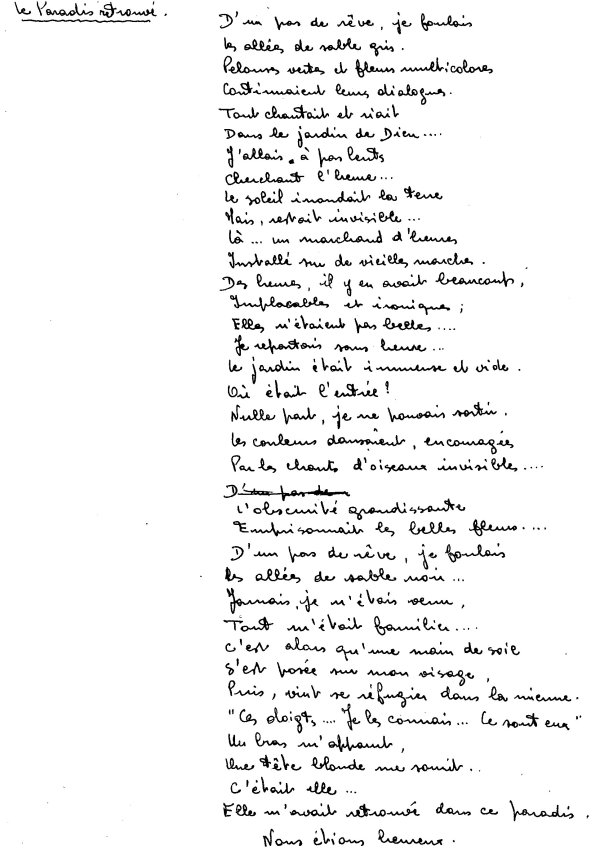 Le Paradis retrouvé.
D'un pas de rêve, je foulais
les allées de sable gris.
Pelouses vertes et fleurs multicolores
Continuaient leurs dialogues.
Tout chantait et riait
Dans le jardin de Dieu....
J'allais à pas lents
Cherchant l'heure...
Le soleil inondait la terre
Mais, restait invisible...
Là... un marchand d'heures
Installé sur de vieilles marches.
Des heures, il y en avait beaucoup,
Implacables et ironiques ;
Elles n'étaient pas belles....
Je repartais sans heure...
Le jardin était immense et vide.
Où était l'entrée !
Nulle part, je ne pouvais sortir.
Les couleurs dansaient, encouragées
Par les chants d'oiseaux invisibles....
D'un pas de
L'obscurité grandissante
Emprisonnait les belles fleurs....
D'un pas de rêve, je foulais
les allées de sable noir...
Jamais, je n'étais venu,
Tout m'était familier....
C'est alors qu'une main de soie
S'est posée sur mon visage,
Puis, vint se réfugier dans la mienne.
"Ces doigts.... Je les connais... Ce sont eux"
Un bras m'apparut,
Une tête blonde me sourit..
C'était elle...
Elle m'avait retrouvé dans ce paradis.
Nous étions heureux.